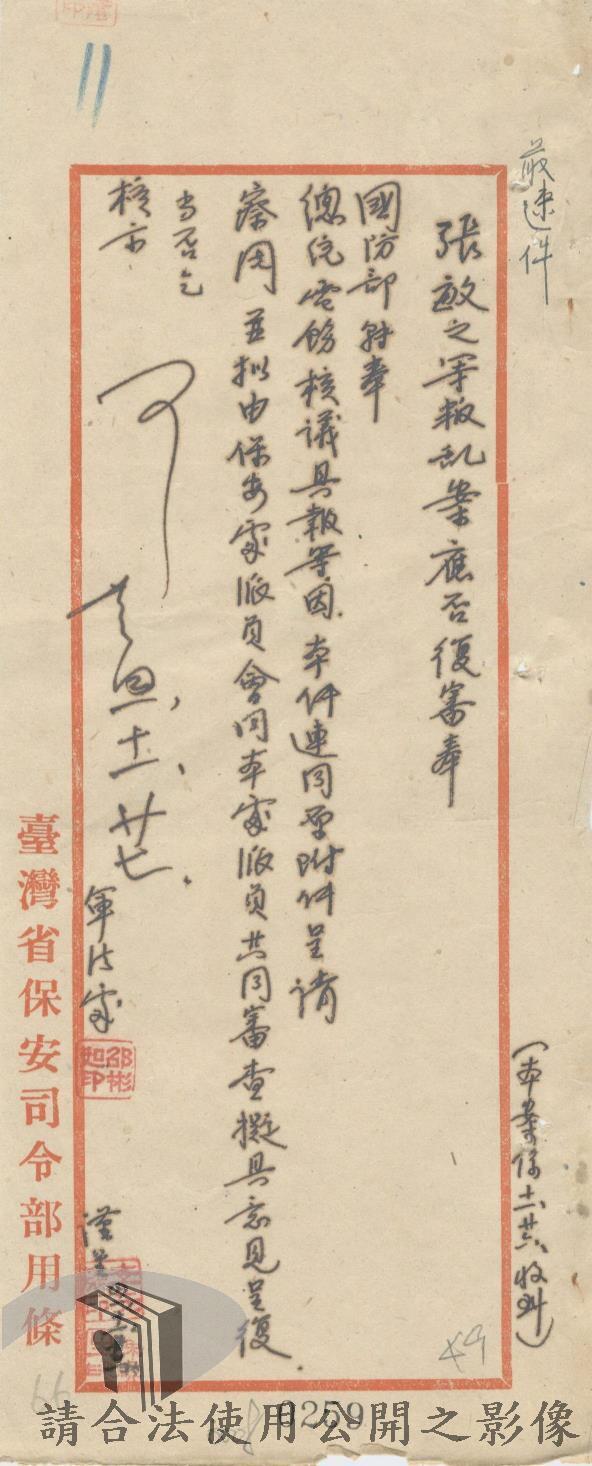 最速件
（本案係十一廿六收到）
張敏之等叛亂案應否復審奉
國防部轉奉
總統電飭核議具報等因本件連同原附件呈請
察閱並擬由保安處派員會同本處派員共同審查擬具意見呈復.
當否乞
核示
可
十一、廿七.
軍法處
邵彬如印
謹呈
臺灣省保安司令部用條
11
49
66
0259
請合法使用公開之影像